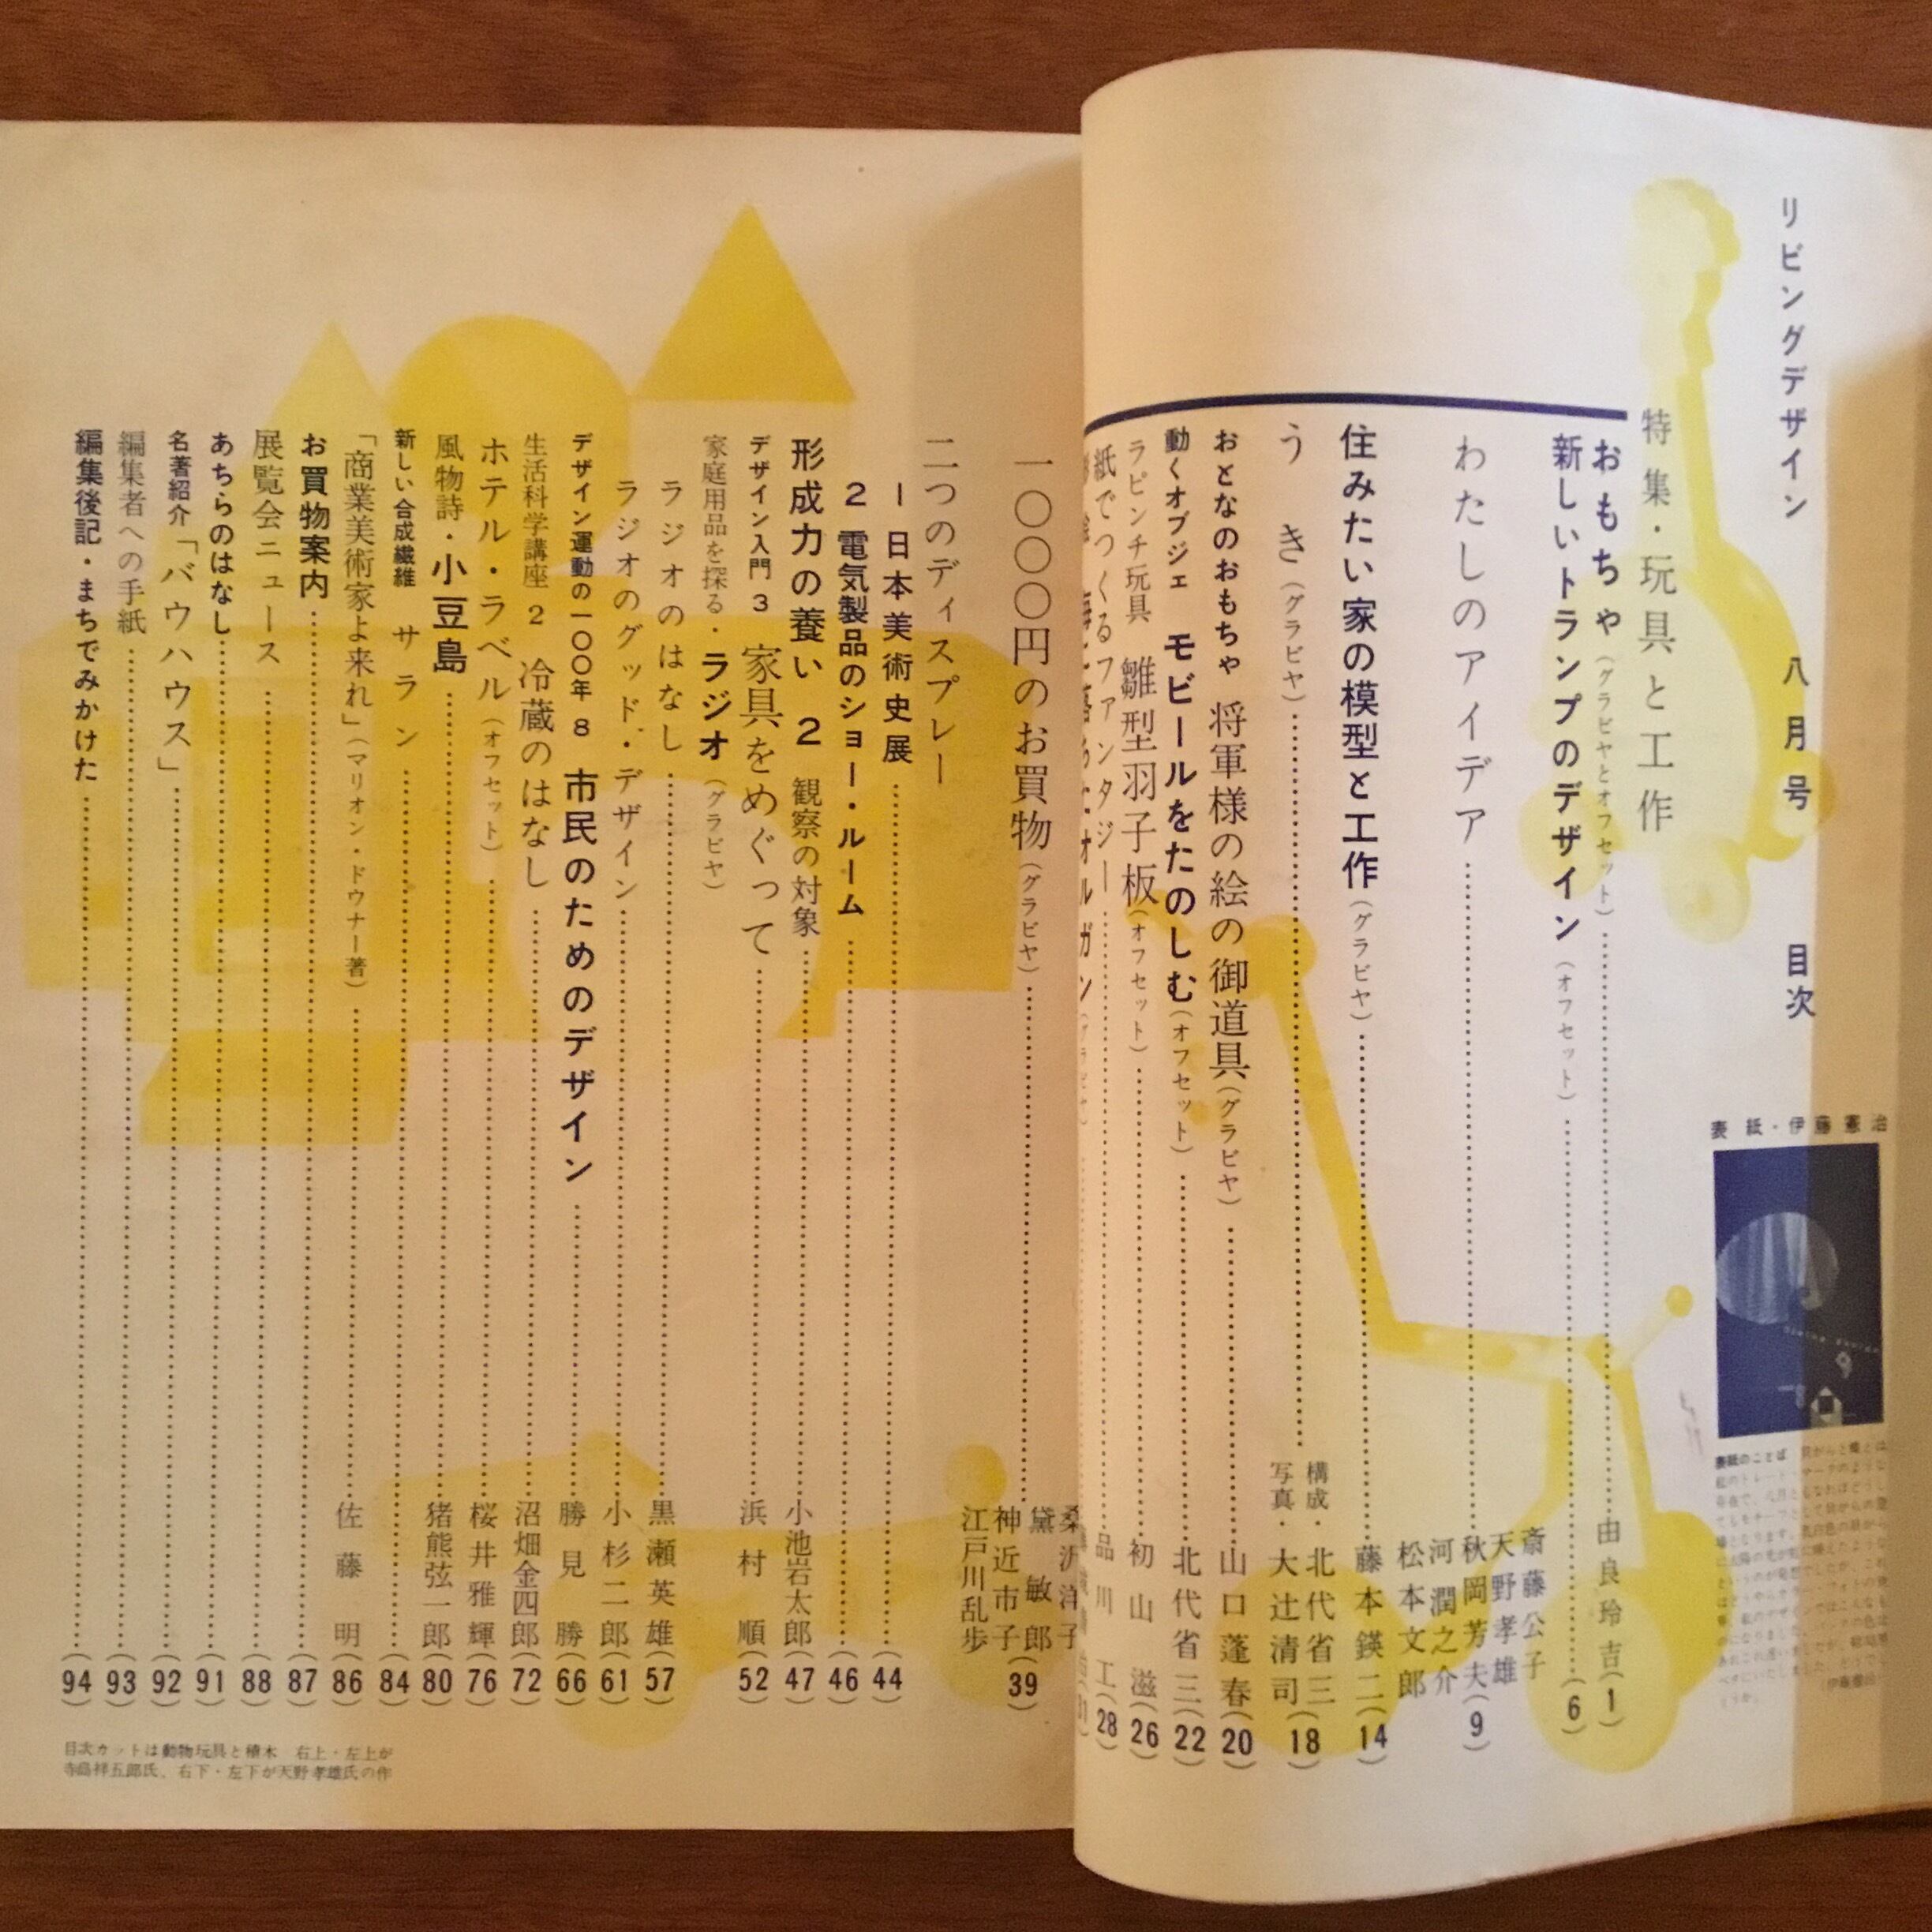 リビングデザイン 八月号 目次
表紙・伊藤憲治
表紙のことば
特集・玩具と工作
おもちゃ(グラビヤとオフセット)……由良玲吉(1)
新しいトランプのデザイン(オフセット)……(6)
わたしのアイデア……
斎藤公子
天野孝雄
秋岡芳夫(9)
河潤之介
松本文郎
住みたい家の模型と工作(グラビヤ)……藤本鍈二(14)
うき(グラビヤ)……
構成・北代省三
写真・大辻清司(18)
おとなのおもちゃ 将軍様の絵の御道具(グラビヤ)……山口蓬春(20)
動くオブジェ モビールをたのしむ(オフセット)……北代省三(22)
ラピンチ玩具 雛型羽子板(オフセット)……初山滋(26)
紙でつくるファンタジー……品川工(28)
オルガン
一〇〇〇円のお買物(グラビヤ)……
黛敏郎(39)
神近市子
江戸川乱歩
二つのディスプレー
1 日本美術史展……(44)
2 電気製品のショー・ルーム……(46)
形成力の養い 2 観察の対象……小池岩太郎(47)
デザイン入門 3 家具をめぐって……浜村順(52)
家庭用品を探る・ラジオ(グラビヤ)
ラジオのはなし……黒瀬英雄(57)
ラジオのグッド・デザイン……小杉二郎(61)
デザイン運動の一〇〇年 8 市民のためのデザイン……勝見勝(66)
生活科学講座 2 冷蔵のはなし……沼畑金四郎(72)
ホテル・ラベル(オフセット)……桜井雅輝(76)
風物詩・小豆島……猪熊弦一郎(80)
新しい合成繊維 サラン……(84)
「商業美術家よ来れ」(マリオン・ドウナー著)……佐藤明(86)
お買物案内……(87)
展覧会ニュース……(88)
あちらのはなし……(91)
名著紹介「バウハウス」……(92)
編集者への手紙……(93)
編集後記・まちでみかけた……(94)
目次カットは動物玩具と積木 右上・左上が
寺島祥五郎氏、右下・左下が天野孝雄氏の作